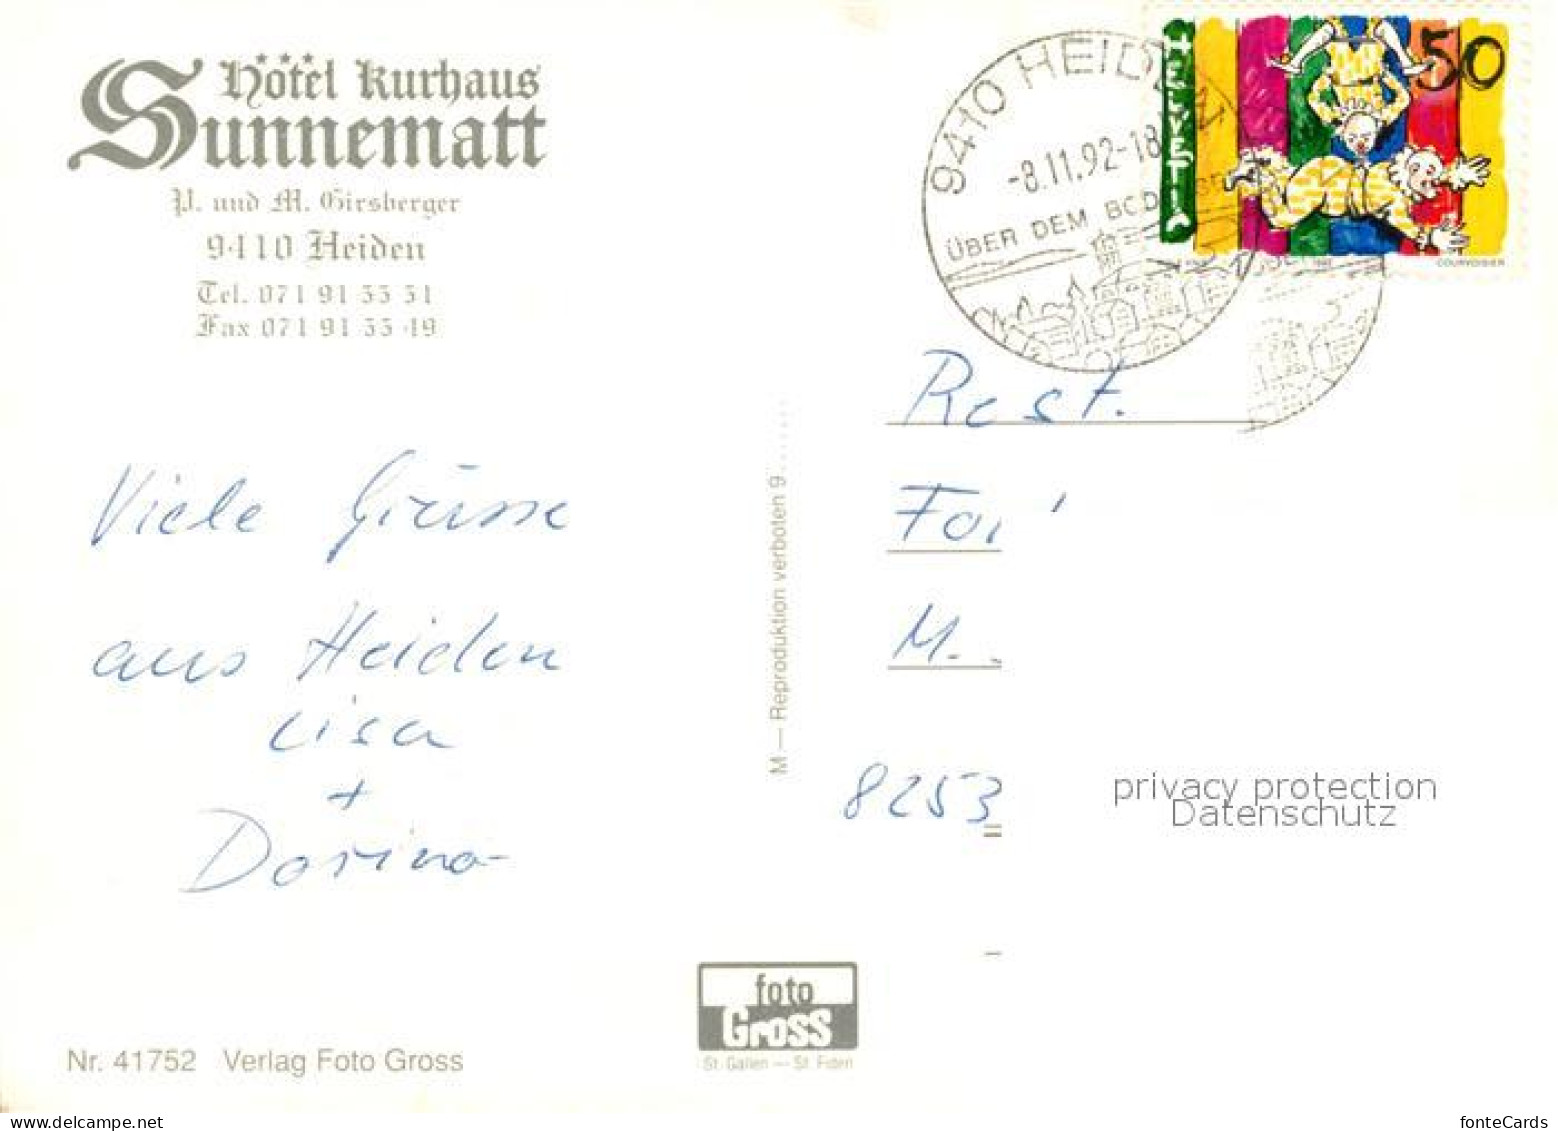 Hôtel Kurhaus
Sunnematt
P. und M. Girsberger
9410 Heiden
Tel. 071 91 33 31
Fax 071 91 33 49
9410 HEIDEN
-8.11.92-18
ÜBER DEM BODENSEE
HELVETIA
50
COURVOISIER
Rest.
M.
8253
Viele Grüsse
aus Heiden
Lisa
+
Dorina
M — Reproduktion verboten 9......
privacy protection
Datenschutz
foto
Gross
St. Gallen — St. Fiden
Nr. 41752 Verlag Foto Gross
fonteCards